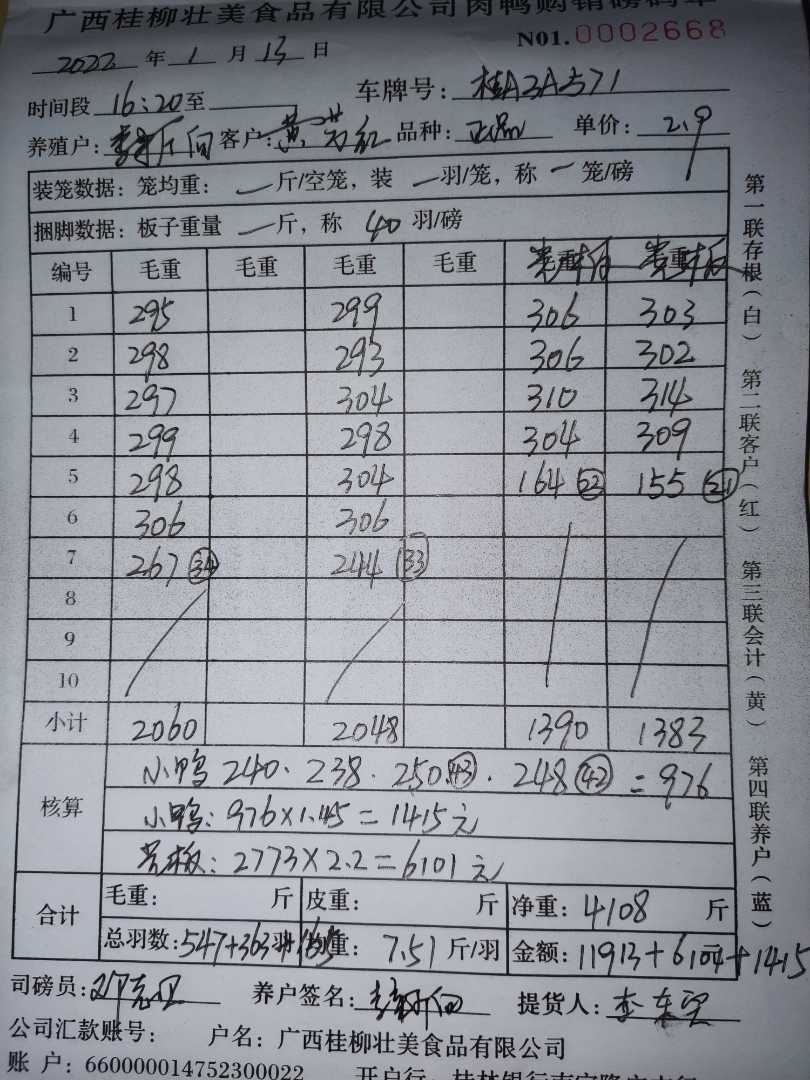 广西桂柳壮美食品有限公司肉鸭购销磅码单
2022 年 1 月 13 日 N01.0002668
时间段 16:20 至 车牌号: 桂A
养殖户: 客户: 黄 红 品种: 正品 单价: 2.9
装笼数据: 笼均重: 一 斤/空笼, 装 一 羽/笼, 称 一 笼/磅
捆脚数据: 板子重量 一 斤, 称 40 羽/磅
编号 毛重 毛重 毛重 毛重
1 295 299 306 303
2 298 293 306 302
3 297 304 310 314
4 299 298 304 309
5 298 304 164 155
6 306 306
7 267 34 244 33
8
9
10
小计 2060 2048 1390 1383
核算 小鸭 240. 238. 250 43. 248 42 = 976
小鸭: 976×1.45=1415元
2773×2.2=6101元
合计 毛重: 斤 皮重: 斤 净重: 4108 斤
总羽数: 547+363 羽 重: 7.51 斤/羽 金额: 11913+ +1415
司磅员: 养户签名: 提货人: 李
公司汇款账号: 户名: 广西桂柳壮美食品有限公司
账 户: 660000014752300022 开户行:
第一联存根(白) 第二联客户(红) 第三联会计(黄) 第四联养户(蓝)